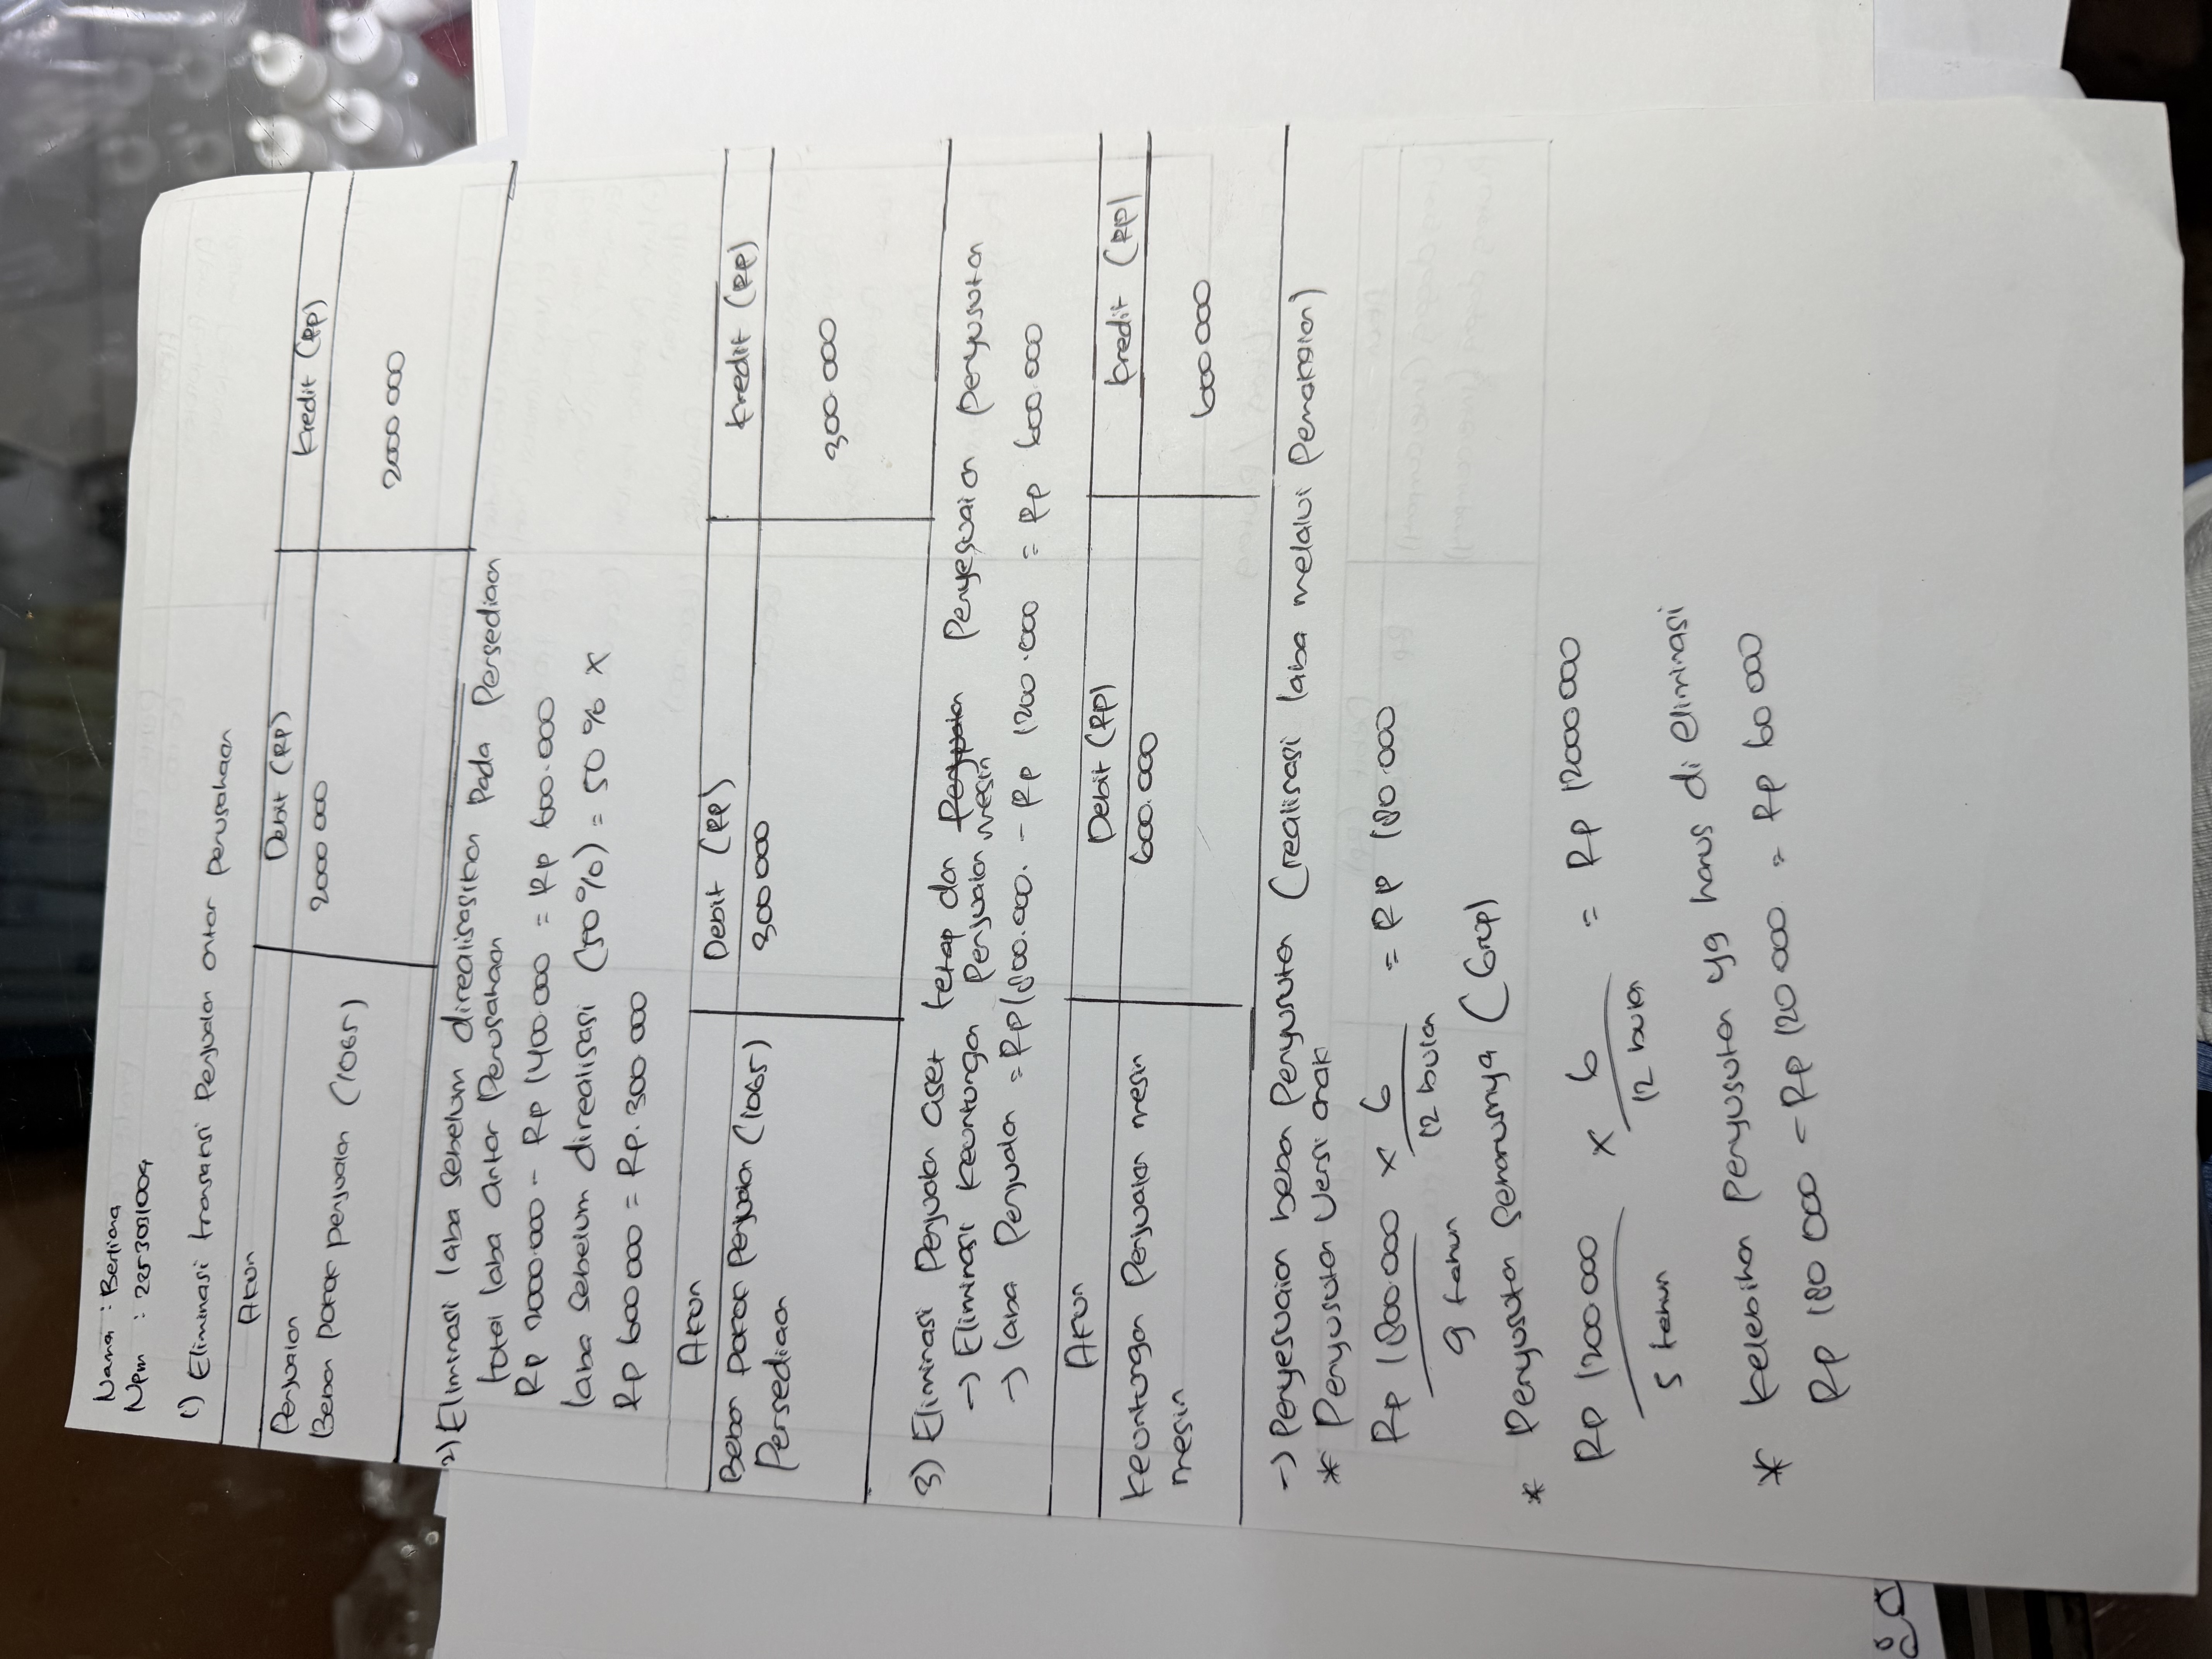 Nama : Berliana
Npm : 2253031009
1) Eliminasi transansi Penjualan antar perusahaan
Akun Debit (RP) Kredit (RP)
Penjualan 2000 000
Beban pokok penjualan (1065) 2000 000
2) Eliminasi laba sebelum direalisasikan pada Persediaan
total laba antar Perusahaan
Rp 2000.000 - Rp 1400.000 = Rp 600.000
laba sebelum direalisasi (50%) = 50% x
Rp 600 000 = Rp. 300 000
Akun Debit (RP) Kredit (RP)
Beban pokok Penjualan (1065) 300 000
Persediaan 300.000
3) Eliminasi Penjualan aset tetap dan Penyesuaian penyusutan
-> Eliminasi keuntungan Penjualan mesin
-> laba Penjualan = Rp 1800.000. - Rp 1200.000 = Rp 600.000
Akun Debit (RP) kredit (RP)
keuntungan Penjualan mesin 600.000
mesin 600 000
-> Penyesuaian beban Penyusutan (realisasi laba melalui Pemakaian)
* Penyusutan Versi anak
Rp 1800.000 x 6 = RP 180.000
9 tahun 12 bulan
* Penyusutan Semarusnya (Grup)
Rp 1200 000 x 6 = Rp 12000 000
5 tahun 12 bulan
* kelebihan Penyusutan yg harus di eliminasi
Rp 180 000 - Rp 120 000 = Rp 60 000